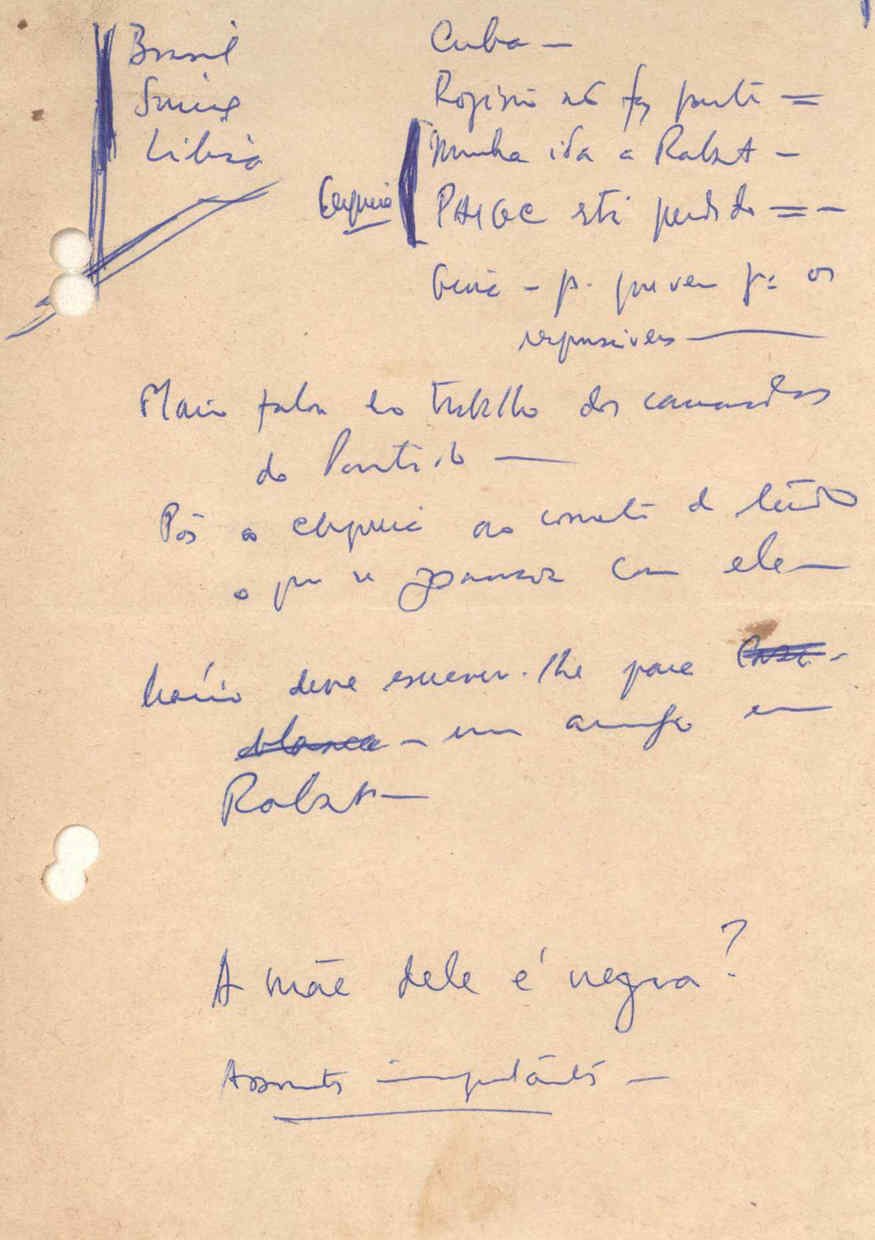 Brasil
Suécia
Líbia
Cuba —
Rogério não faz parte =
Minha ida a Rabat —
PAIGC está perdido = —
Guiné — p. que vem pª os
responsáveis —
Mário fala do trabalho dos camaradas
do Partido —
Pôs o ao corrente de tudo
o que se passou com ele —
Mário deve escrever-lhe para Casa-
blanca — um amigo em
Rabat —
A mãe dele é negra?
Assunto importante —